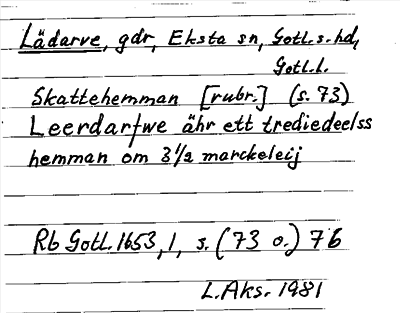 Lädarve, gdr, Eksta sn, Gotl. s. hd,
Gotl. l.
Skattehemman [rubr.] (s. 73)
Leerdarfwe ähr ett trediedeelss
hemman om 3 1/2 marckeleij
Rb Gotl. 1653, 1, s. (73 o.) 76
L. Aks. 1981